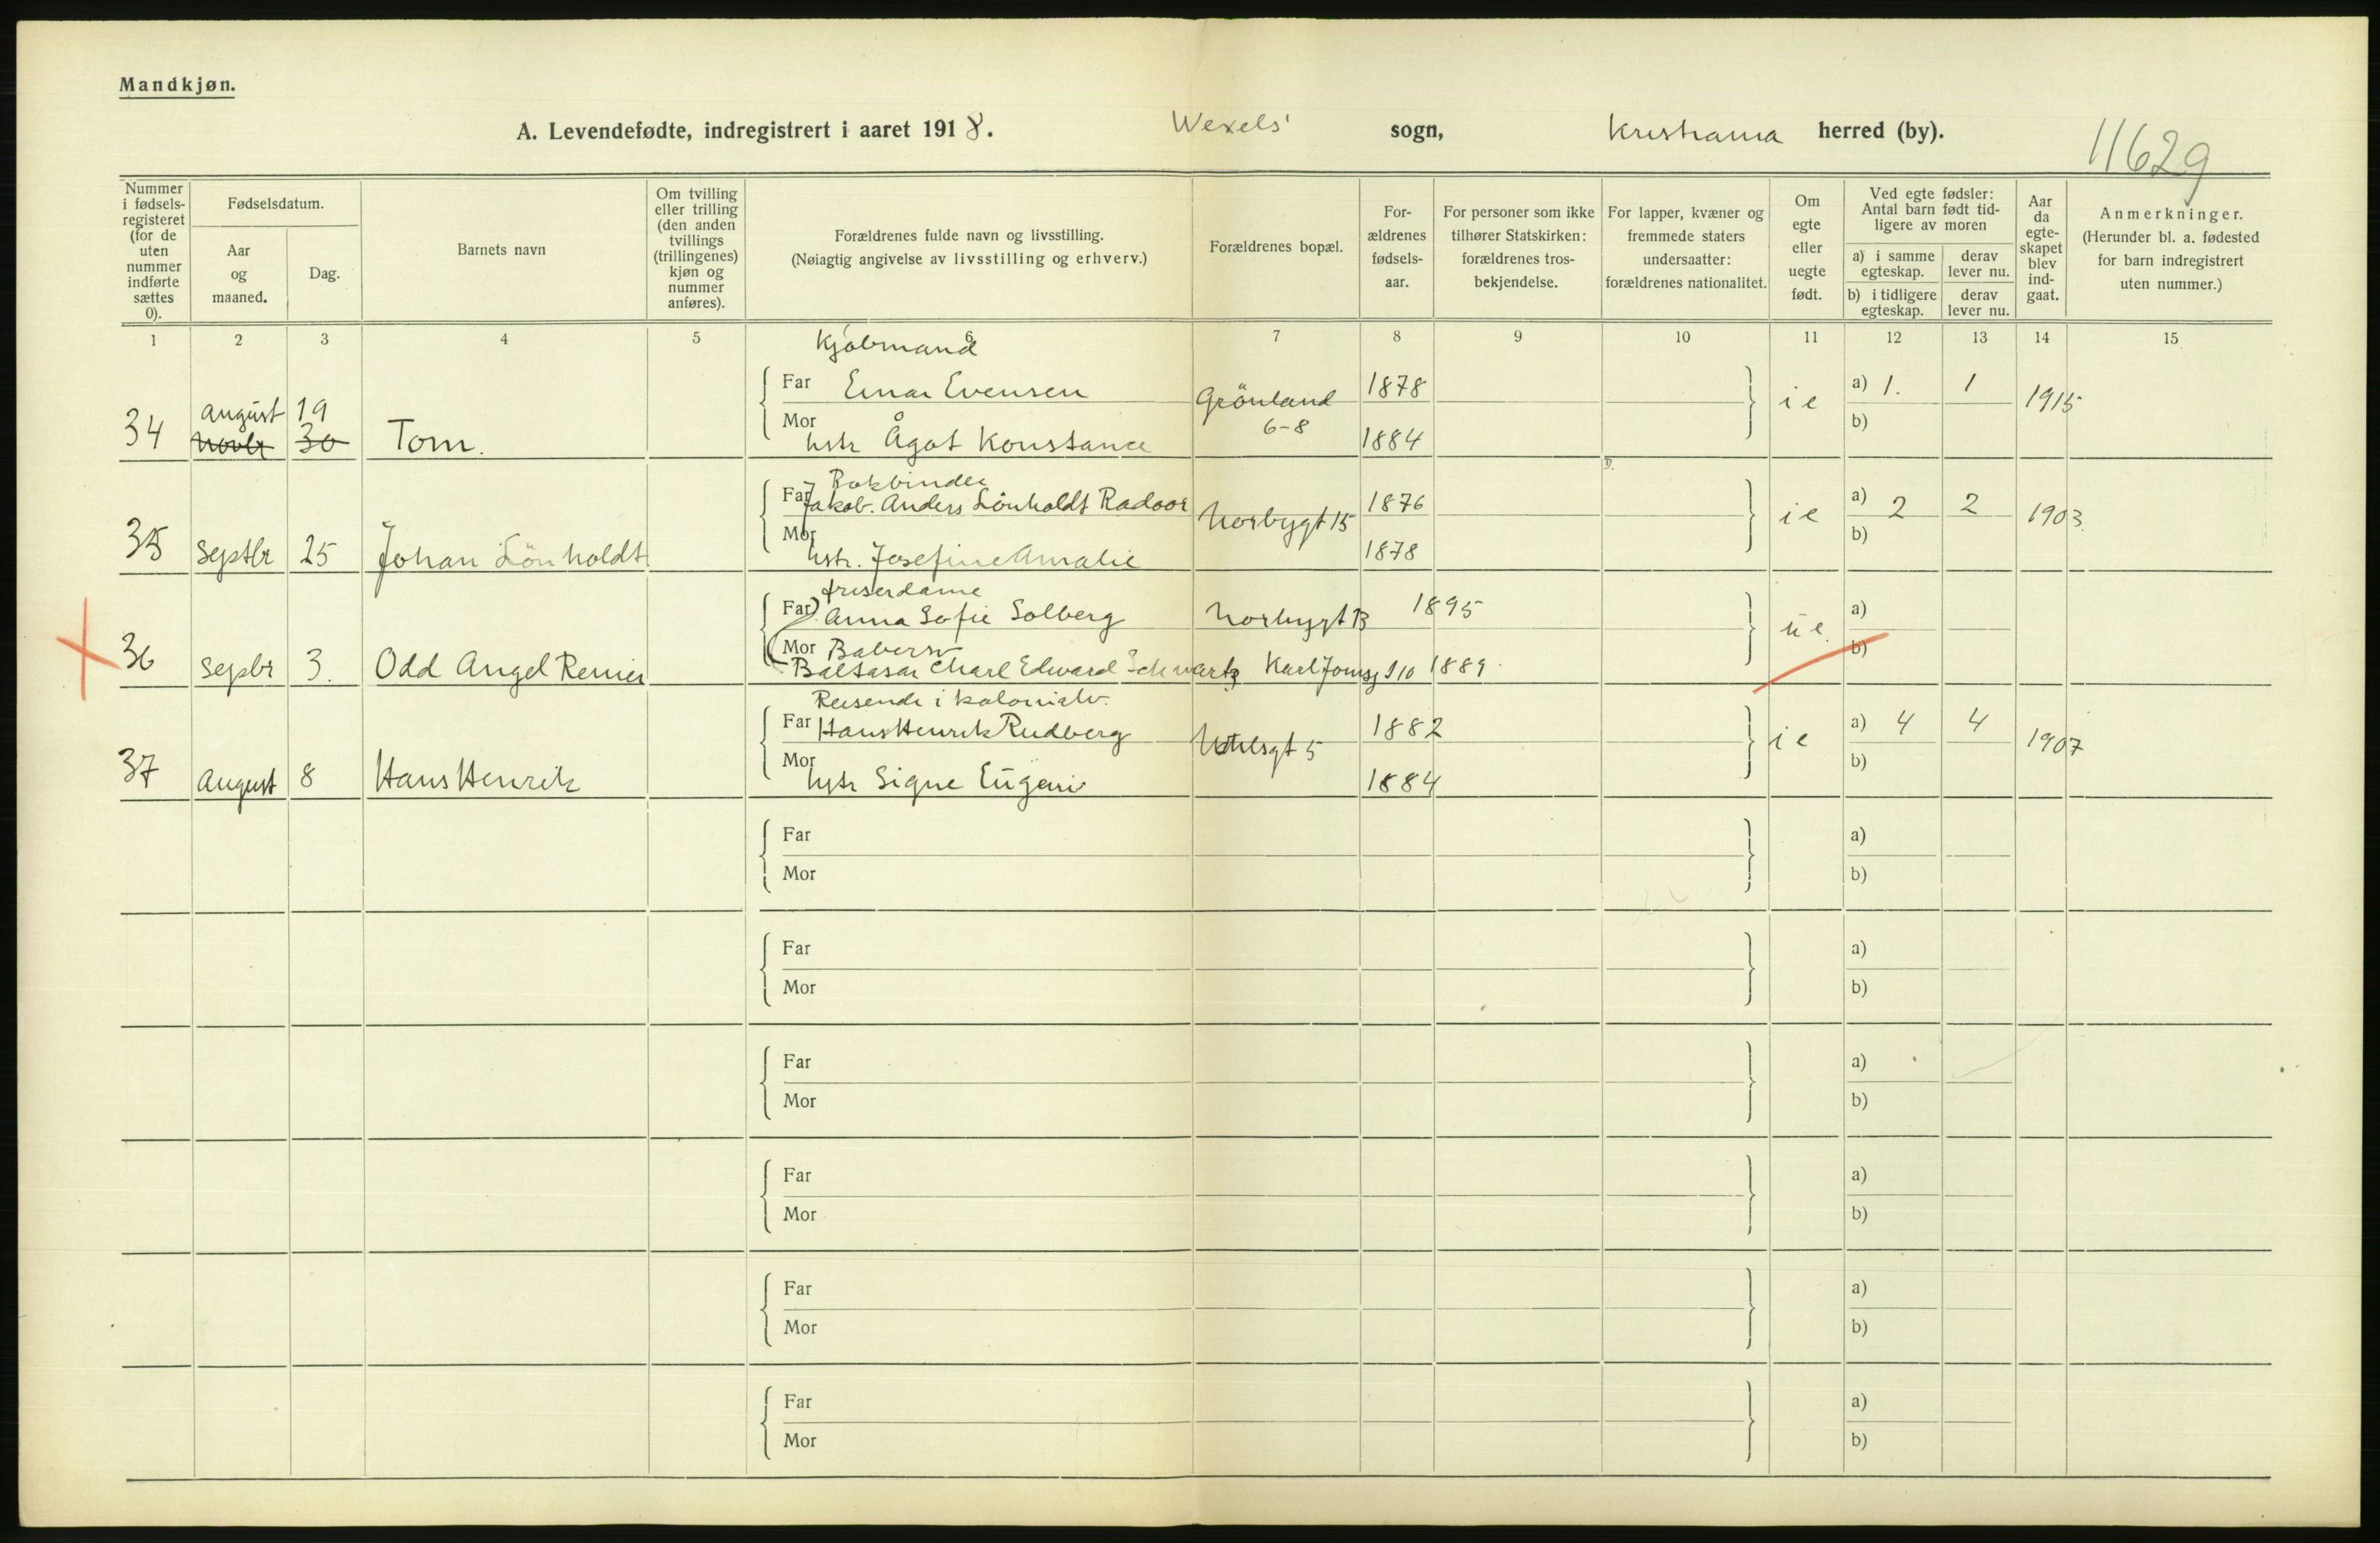 Mandkjøn.
A. Levendefødte, indregistrert i aaret 1918. Wexels' sogn, Kristiania herred (by).
11629
Nummer i fødsels-registeret (for de uten nummer indførte sættes 0).
Fødselsdatum.
Aar og maaned.
Dag.
Barnets navn
Om tvilling eller trilling (den anden tvillings (trillingenes) kjøn og nummer anføres).
Forældrenes fulde navn og livsstilling.
(Nøiagtig angivelse av livsstilling og erhverv.)
Forældrenes bopæl.
For-ældrenes fødsels-aar.
For personer som ikke tilhører Statskirken: forældrenes tros-bekjendelse.
For lapper, kvæner og fremmede staters undersaatter: forældrenes nationalitet.
Om egte eller uegte født.
Ved egte fødsler: Antal barn født tid-ligere av moren
a) i samme egteskap.
derav lever nu.
b) i tidligere egteskap.
derav lever nu.
Aar da egte-skapet blev ind-gaat.
Anmerkninger.
(Herunder bl. a. fødested for barn indregistrert uten nummer.)
1 2 3 4 5 6 7 8 9 10 11 12 13 14 15
Kjøbmand
Far Einar Evensen Grönland 1878 i e a) 1. 1 1915
August 19
34 Novbr 30 Tom. Mor hstr Ågot Konstance 6-8 1884 b)
Bokbinder
Far Jakob. Anders Lönholdt Radoor Norbygt 15 1876 i e a) 2 2 1903
35 Septbr 25 Johan Lönholdt Mor hstr. Josefine Amalie 1878 b)
friserdame
Far Anna Sofie Solberg Norbygt 13 1895 u e. a)
36 Sepbr 3. Odd Angel Reiner Mor
Baltasar Charl Edward Schwartz Karl Johnsg 1889. b)
Reisende i kolonialv.
Far Hans Henrik Rudberg 5 1882 i e a) 4 4 1907
37 August 8 Hans Henrik Mor hstr Signe Eugeni 1884 b)
Far a)
Mor b)
Far a)
Mor b)
Far a)
Mor b)
Far a)
Mor b)
Far a)
Mor b)
Far a)
Mor b)